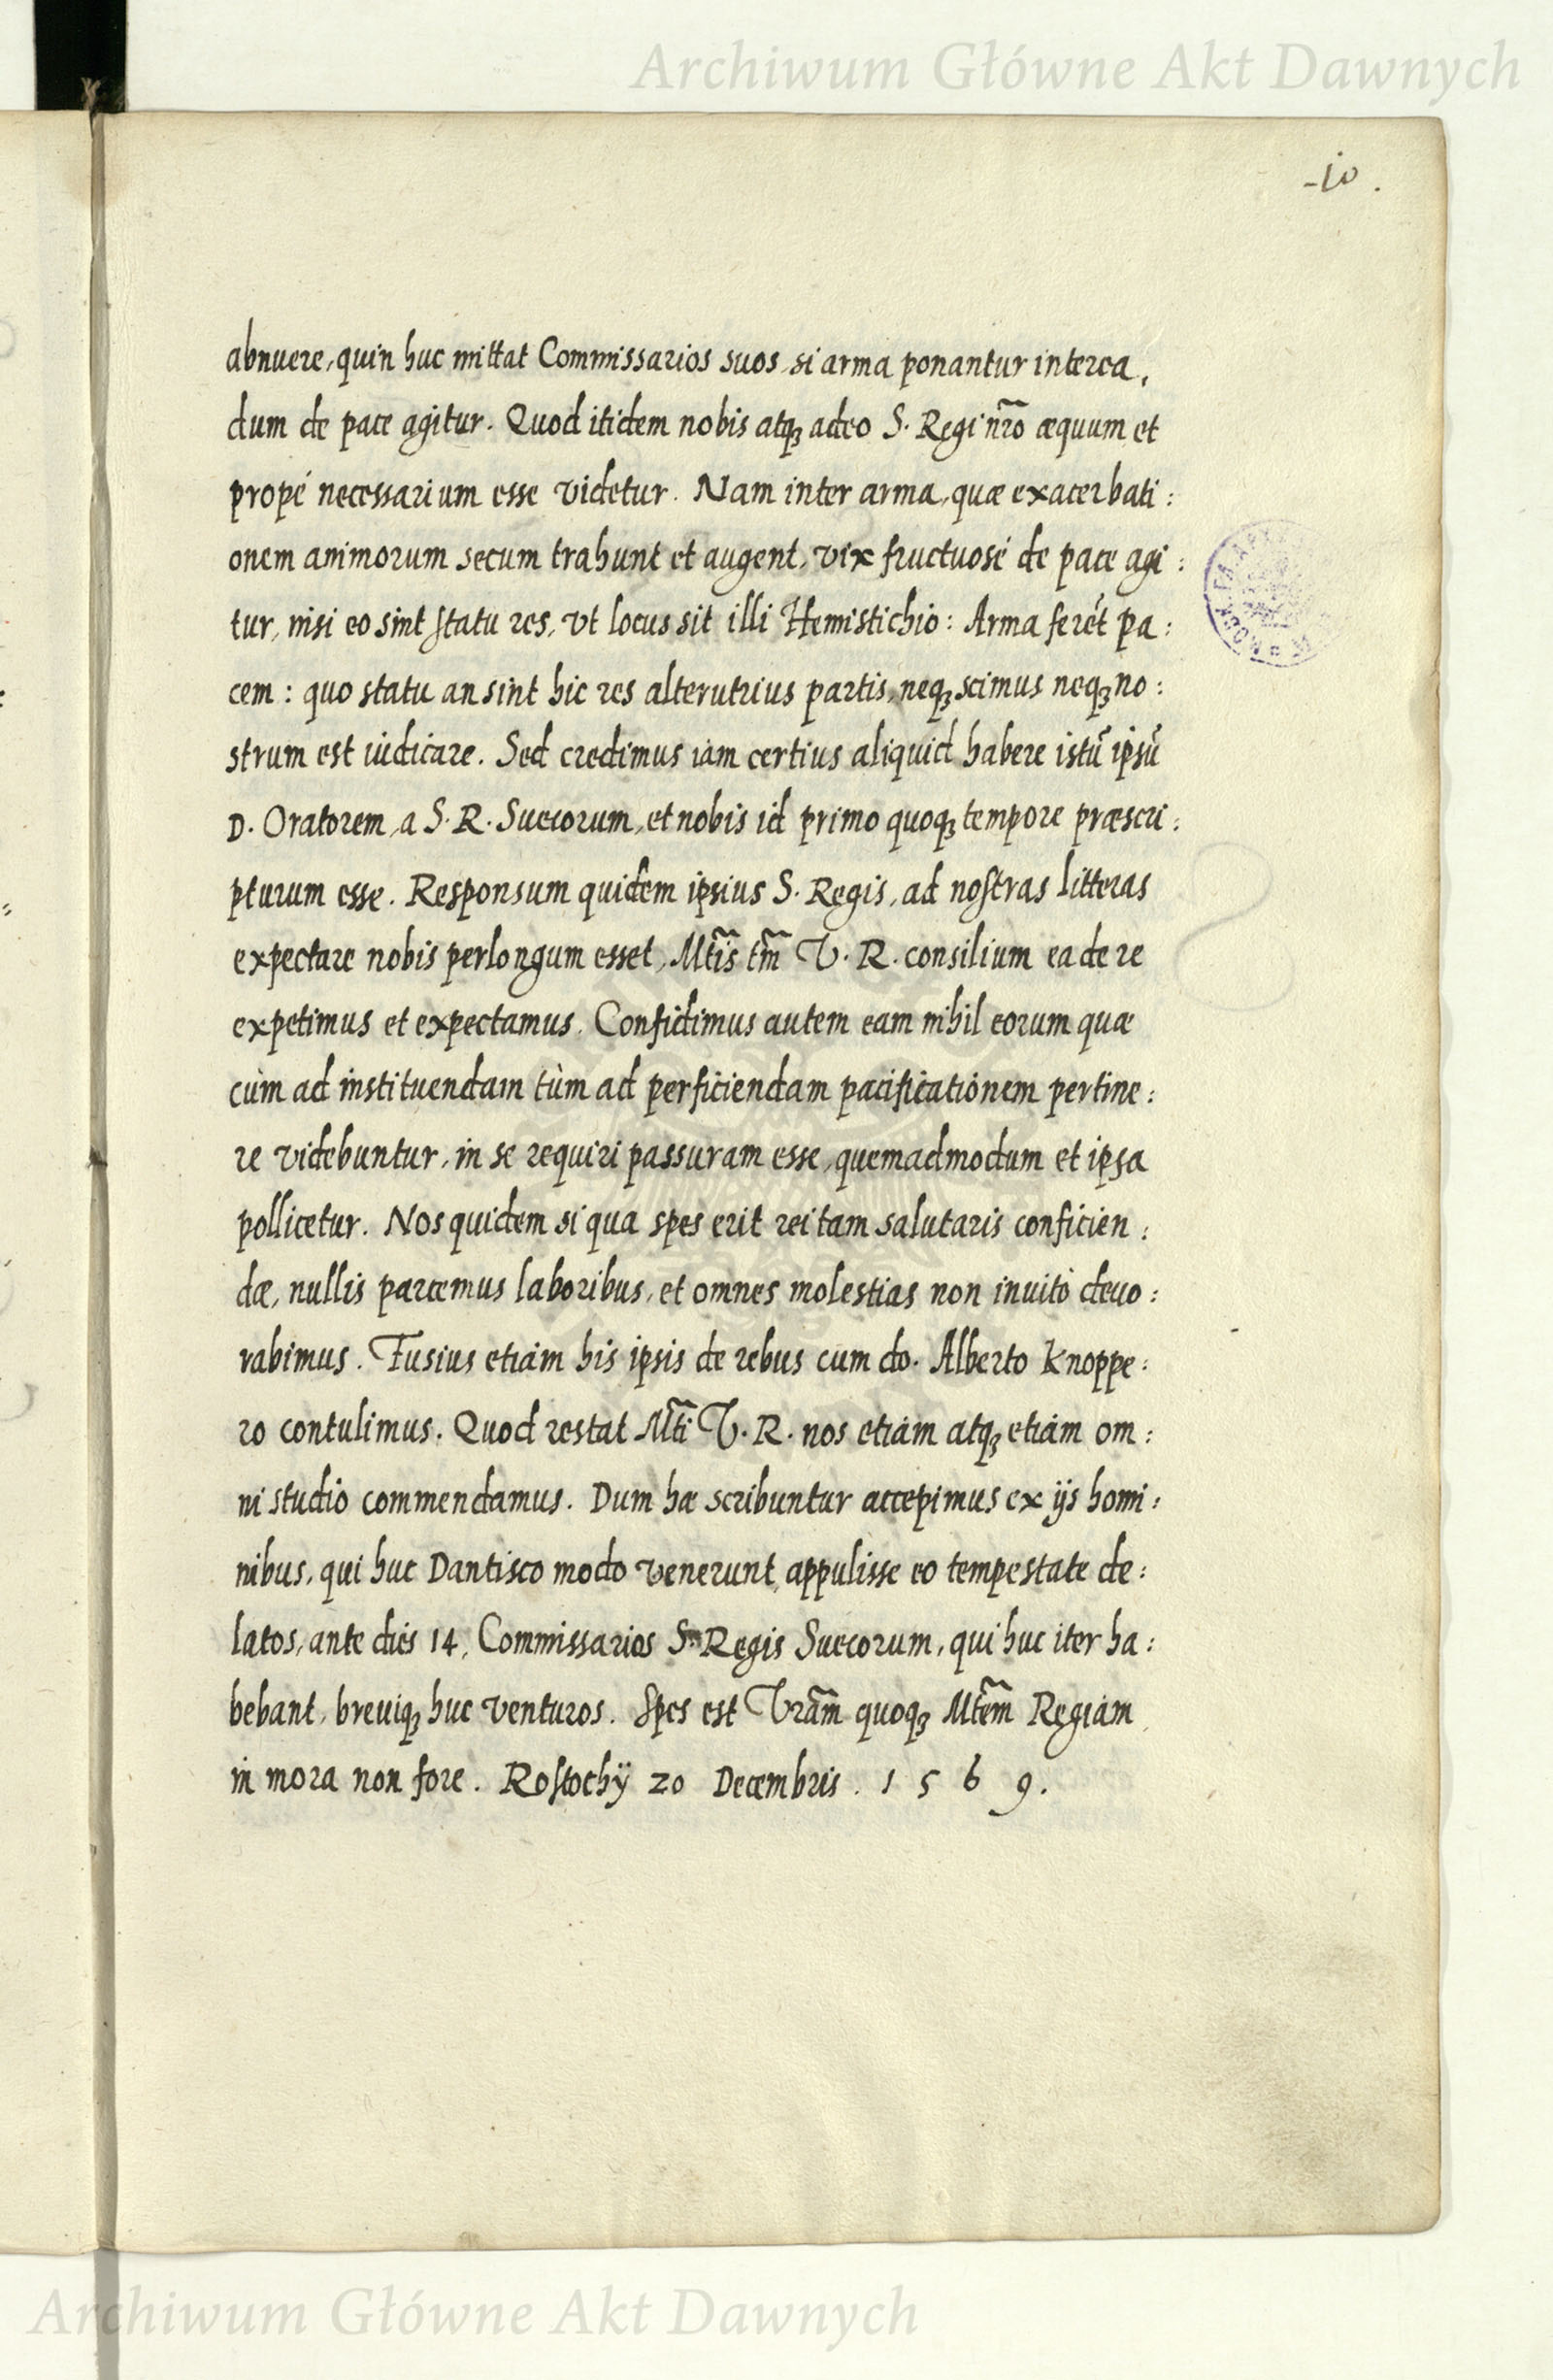 Archiwum Główne Akt Dawnych
abnuere, quin huc mittat Commissarios suos, si arma ponantur interea,
dum de pace agitur. Quod itidem nobis atq3 adeo S. Regi nr̃o æquum et
propè necessarium esse videtur. Nam inter arma, quæ exacerbati:
onem animorum secum trahunt et augent, vix fructuosè de pace agi:
tur, nisi eo sint statu res, vt locus sit illi Hemistichio: Arma ferẽt pa:
cem: quo statu an sint hic res alterutrius partis, neq3 scimus neq3 no:
strum est iudicare. Sed credimus iam certius aliquid habere istũ ipsũ
D. Oratorem, a S. R. Suecorum, et nobis id primo quoq3 tempore præscri:
pturum esse. Responsum quidem ipsius S. Regis, ad nostras litteras
expectare nobis perlongum esset, Mt̃is tm̃ V. R. consilium ea de re
expetimus et expectamus. Confidimus autem eam nihil eorum quæ
cùm ad instituendam tùm ad perficiendam pacificationem pertine:
re videbuntur, in se requiri passuram esse, quemadmodum et ipsa
pollicetur. Nos quidem si qua spes erit rei tam salutaris conficien:
dæ, nullis parcemus laboribus, et omnes molestias non inuitò deuo:
rabimus. Fusius etiam his ipsis de rebus cum do. Alberto Knoppe:
ro contulimus. Quod restat Mt̃i V. R. nos etiam atq3 etiam om:
ni studio commendamus. Dum hæ scribuntur accepimus ex ijs homi:
nibus, qui huc Dantisco modo venerunt, appulisse eo tempestate de:
latos, ante dies 14, Commissarios S. Regis Suecorum, qui huc iter ha:
bebant, breuiq3 huc venturos. Spes est Vrãm quoq3 Mtẽm Regiam
in mora non fore. Rostochij 20 Decembris. 1569.
Archiwum Główne Akt Dawnych